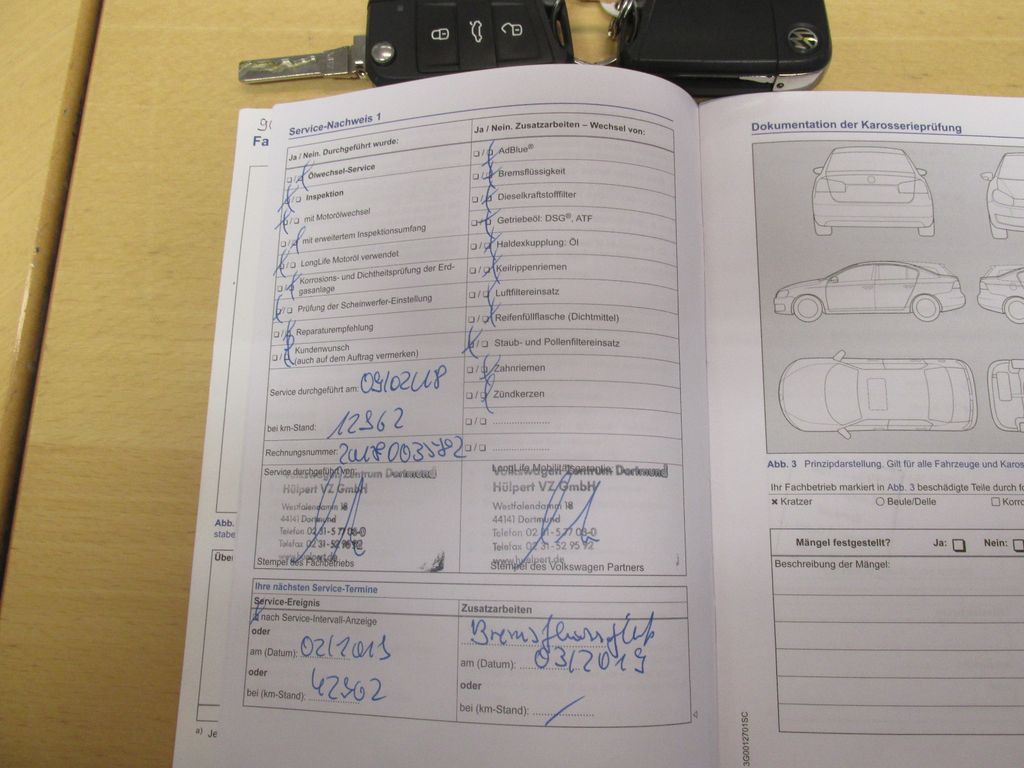 Service-Nachweis 1
Fa
Ja / Nein. Durchgeführt wurde:
Ölwechsel-Service
Inspektion
mit Motorölwechsel
mit erweitertem Inspektionsumfang
LongLife Motoröl verwendet
Korrosions- und Dichtheitsprüfung der Erd-
gasanlage
Prüfung der Scheinwerfer-Einstellung
Reparaturempfehlung
Kundenwunsch
(auch auf dem Auftrag vermerken)
Service durchgeführt am: 09/02/18
bei km-Stand: 12962
Rechnungsnummer: 20180035782
Ja / Nein. Zusatzarbeiten – Wechsel von:
AdBlue®
Bremsflüssigkeit
Dieselkraftstofffilter
Getriebeöl: DSG®, ATF
Haldexkupplung: Öl
Keilrippenriemen
Luftfiltereinsatz
Reifenfüllflasche (Dichtmittel)
Staub- und Pollenfiltereinsatz
Zahnriemen
Zündkerzen
Service durchgeführt von:
Volkswagen Zentrum Dortmund
Hülpert VZ GmbH
Westfalendamm 18
44141 Dortmund
Telefon 02 31-5 77 08-0
Telefax 02 31-52 95 92
www.huelpert.de
Stempel des Fachbetriebs
LongLife Mobilitätsgarantie:
Volkswagen Zentrum Dortmund
Hülpert VZ GmbH
Westfalendamm 18
44141 Dortmund
Telefon 02 31-5 77 08-0
Telefax 02 31-52 95 92
www.huelpert.de
Stempel des Volkswagen Partners
Ihre nächsten Service-Termine
Service-Ereignis
nach Service-Intervall-Anzeige
oder
am (Datum): 02/2019
oder
bei (km-Stand): 42962
Zusatzarbeiten
am (Datum): 03/2019
oder
bei (km-Stand):
Abb.
stabe
Über
a) Je
Dokumentation der Karosserieprüfung
Abb. 3 Prinzipdarstellung. Gilt für alle Fahrzeuge und Karos
Ihr Fachbetrieb markiert in Abb. 3 beschädigte Teile durch fo
Kratzer
Beule/Delle
Korro
Mängel festgestellt? Ja: Nein:
Beschreibung der Mängel:
3G0012701SC